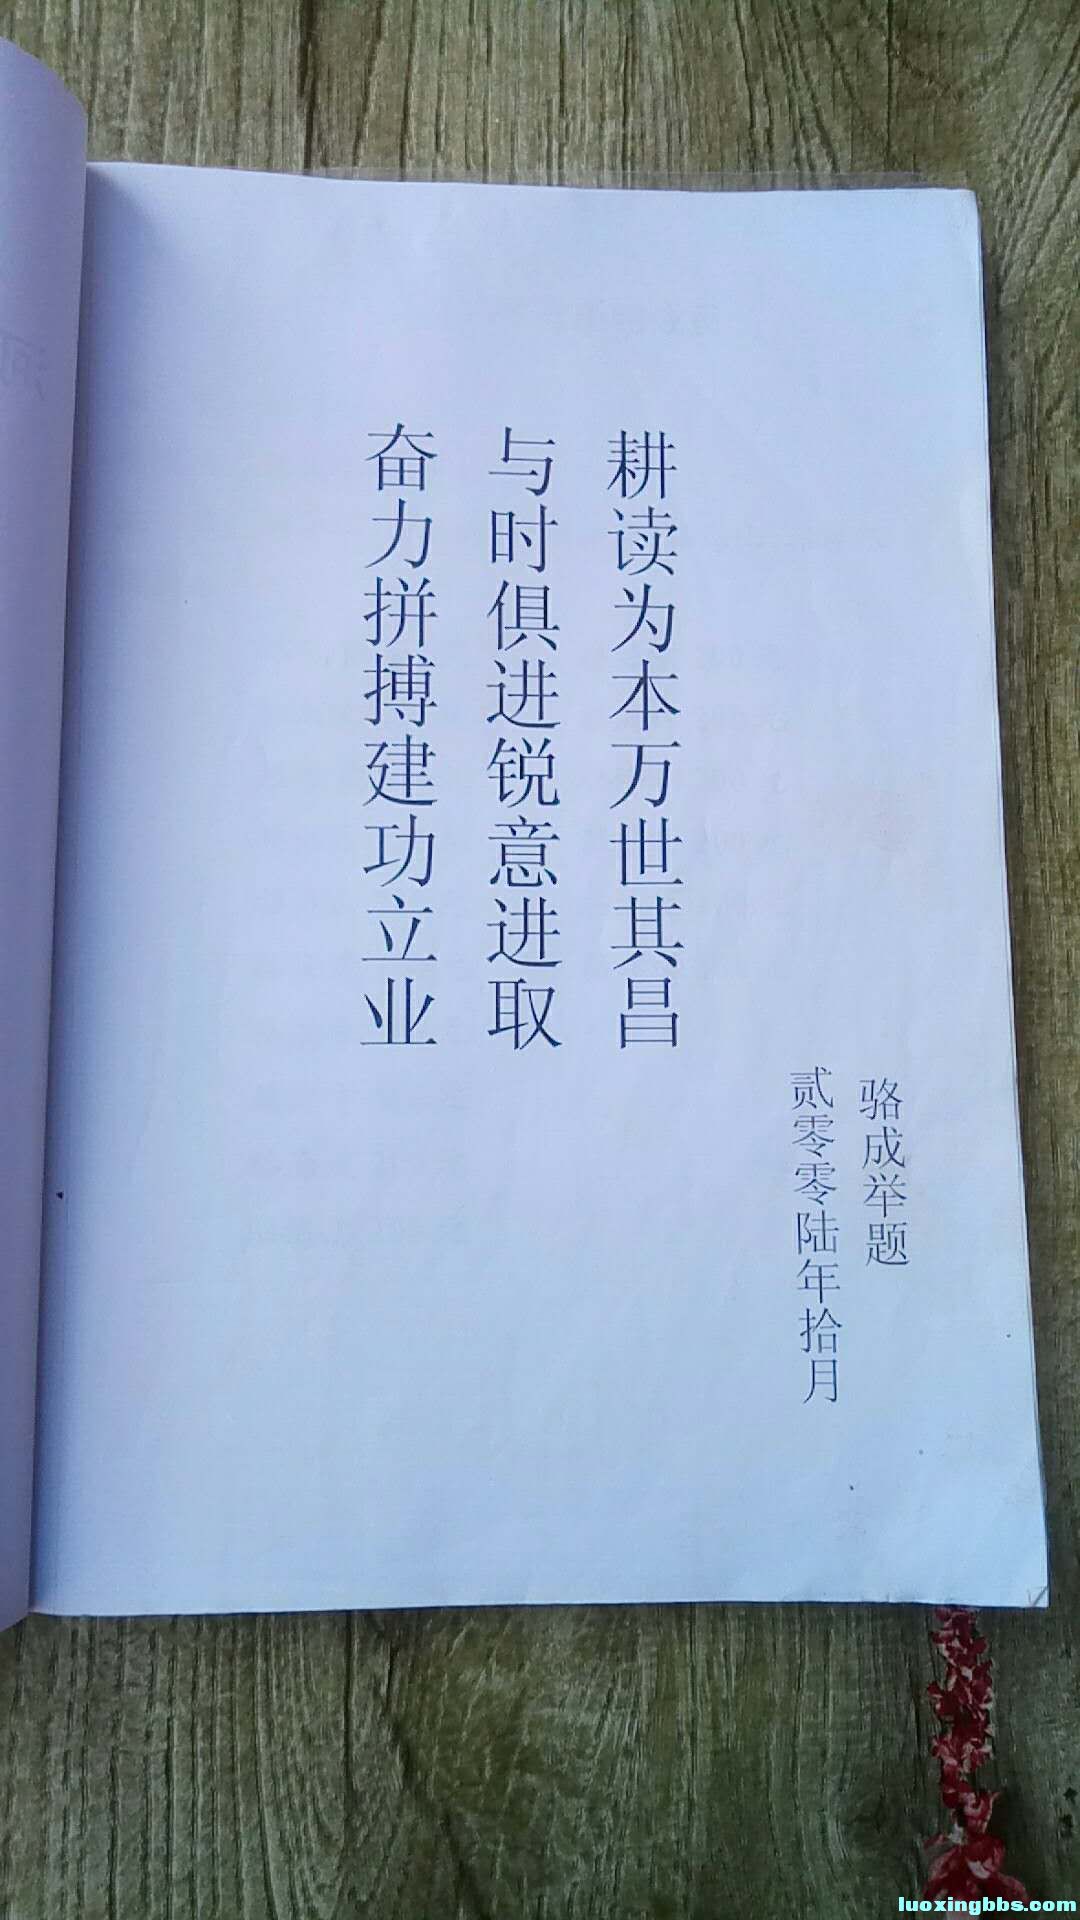 耕读为本万世其昌
与时俱进锐意进取
奋力拼搏建功立业
骆成举题
贰零零陆年拾月
luoxingbbs.com